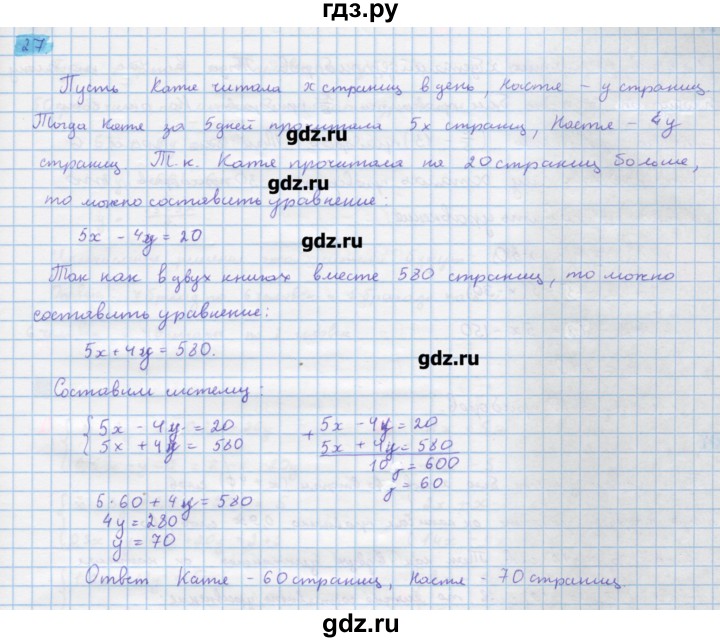 гдз.ру
27
Пусть Катя читала x страниц в день, Настя – y страниц.
Тогда Катя за 5 дней прочитала 5x страниц, Настя – 4y
gdz.ru
страниц. Т.к. Катя прочитала на 20 страниц больше,
gdz.ru
то можно составить уравнение:
5x - 4y = 20
gdz.ru
Так как в двух книгах вместе 580 страниц, то можно
составить уравнение:
5x + 4y = 580.
gdz.ru
Составим систему:
{ 5x - 4y = 20
5x + 4y = 580
+ 5x - 4y = 20
5x + 4y = 580
10y = 600
y = 60
gdz.ru
5·60 + 4y = 580
4y = 280
y = 70
Ответ Катя – 60 страниц, Настя – 70 страниц.
gdz.ru